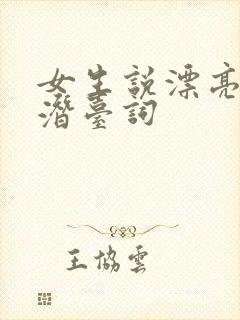 女生説漂亮
潛臺詞
王協雲